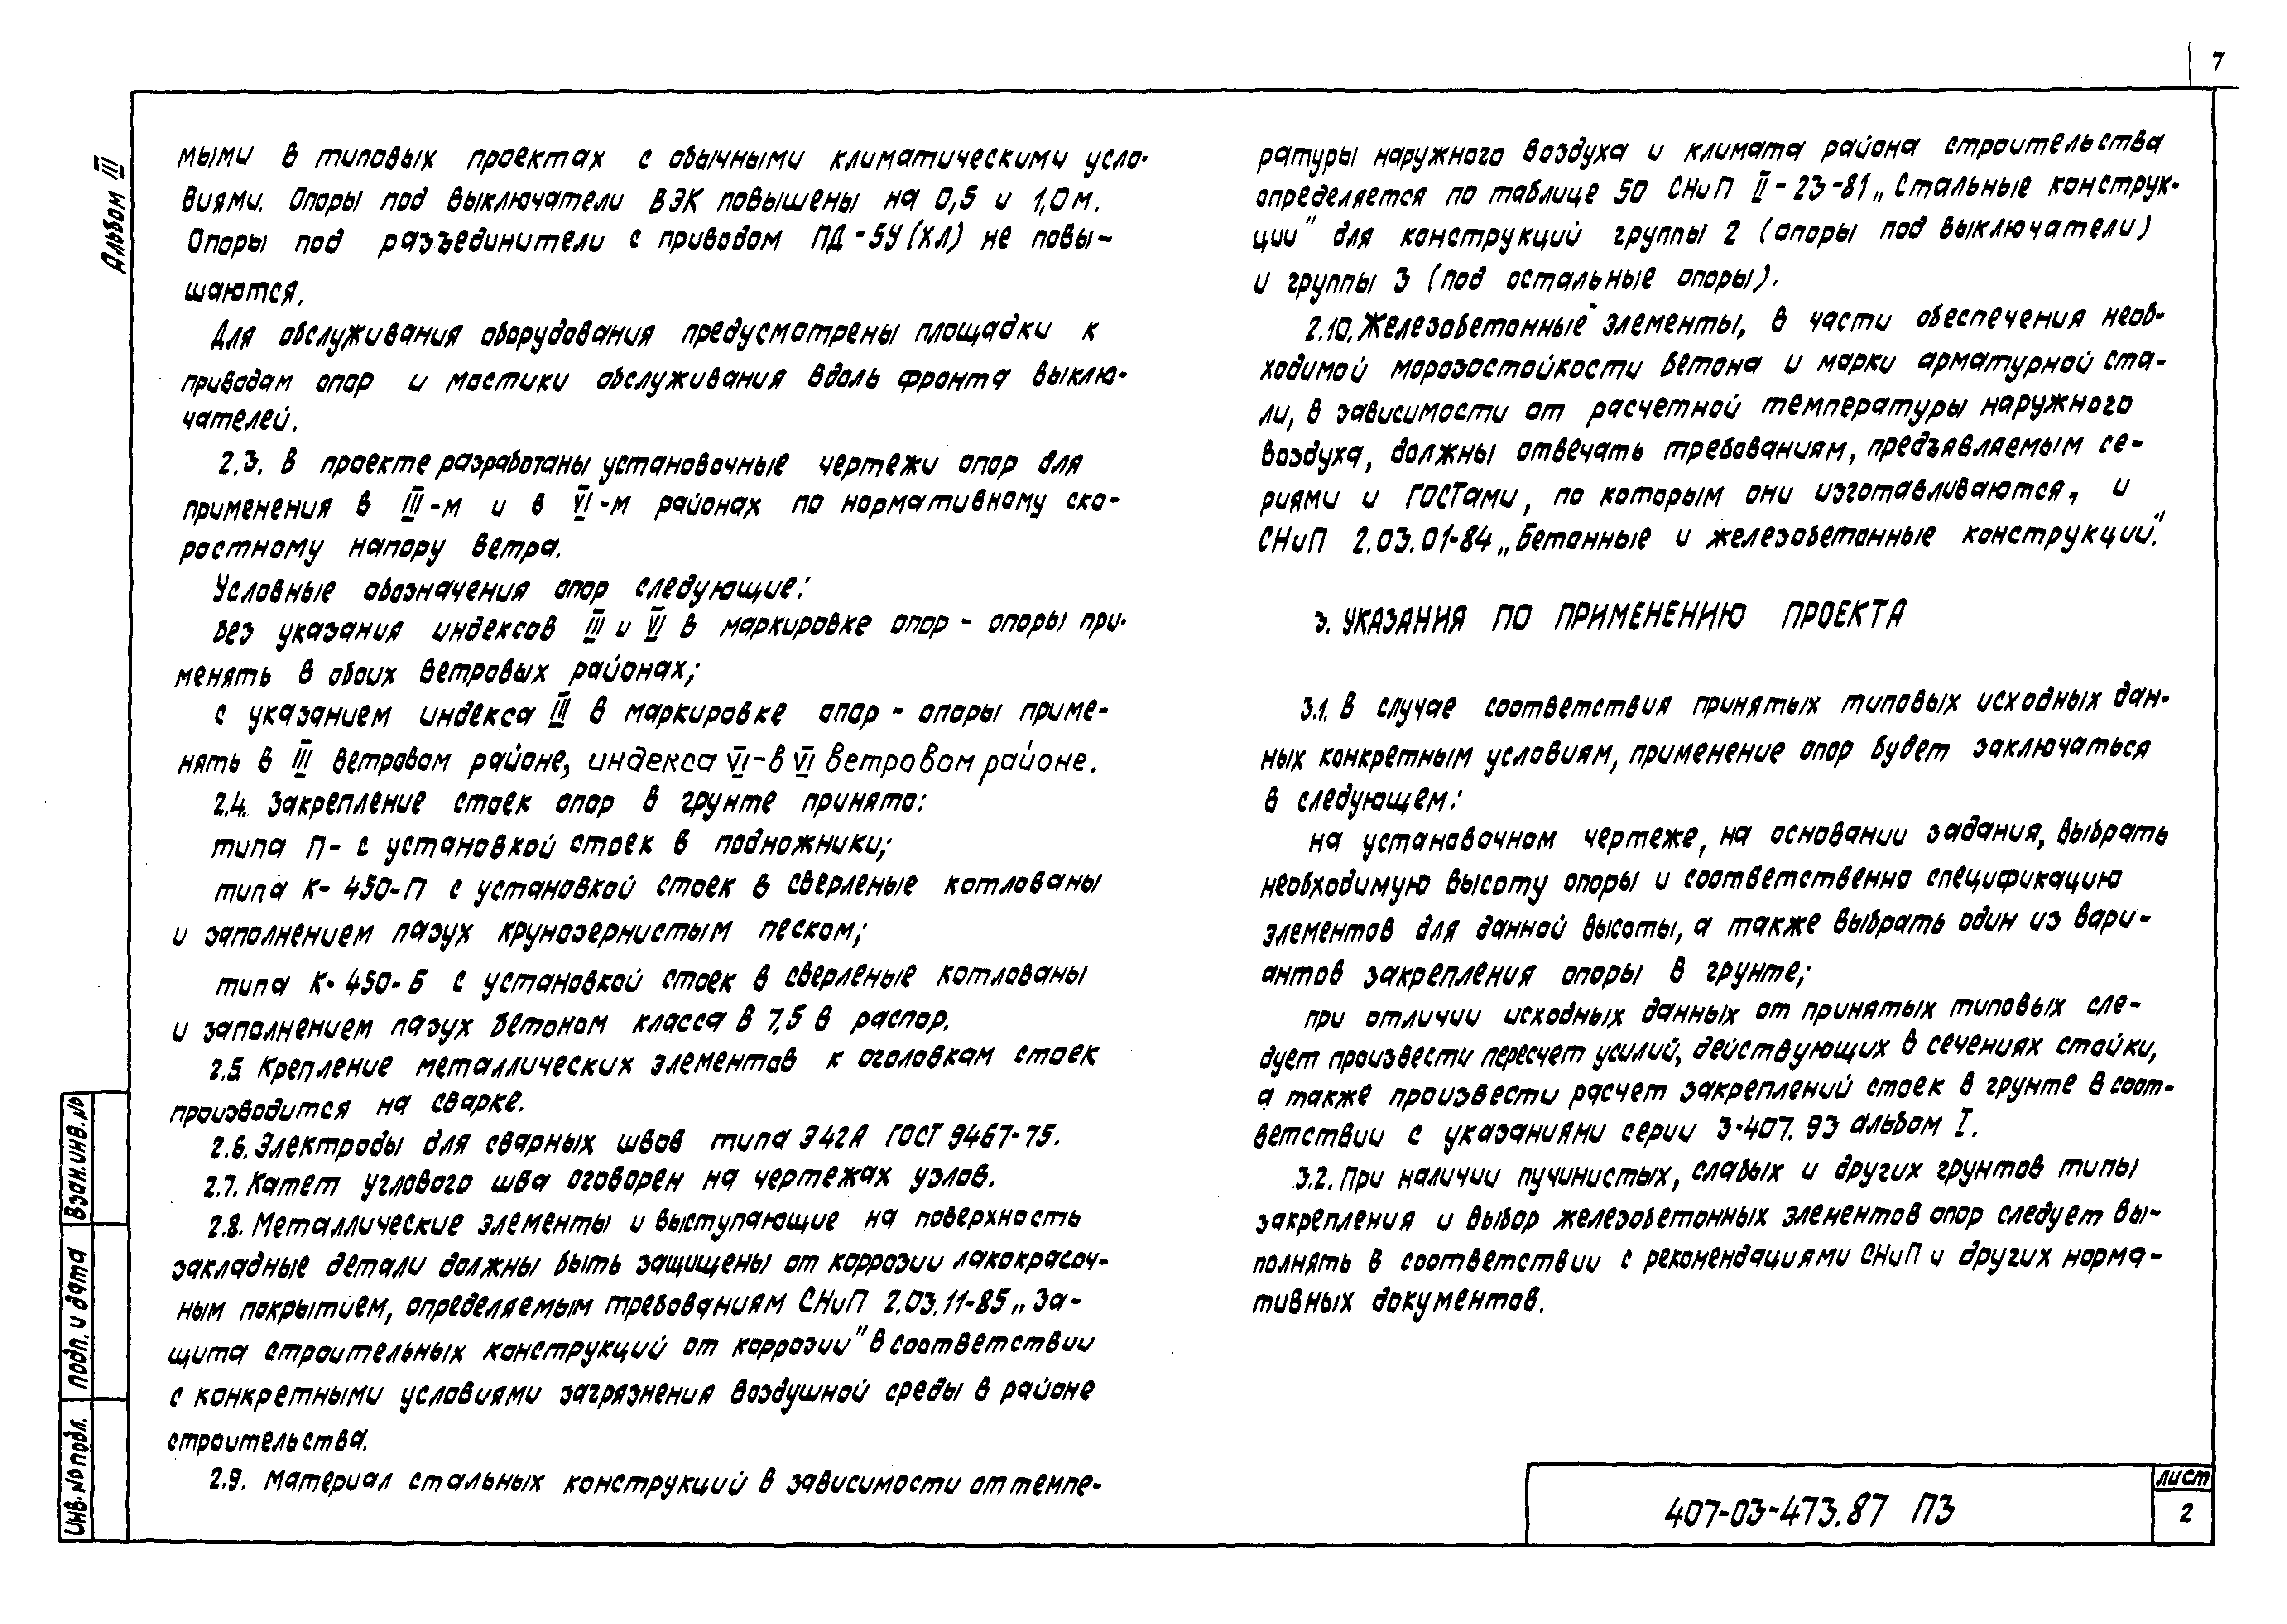 7
Альбом III
мыми в типовых проектах с обычными климатическими усло-
виями. Опоры под выключатели ВЭК повышены на 0,5 и 1,0 м.
Опоры под разъединители с приводом ПД-5У(ХЛ) не повы-
шаются.
Для обслуживания оборудования предусмотрены площадки к
приводам опор и мостики обслуживания вдоль фронта выклю-
чателей.
2.3. В проекте разработаны установочные чертежи опор для
применения в III-м и в VI-м районах по нормативному ско-
ростному напору ветра.
Условные обозначения опор следующие:
без указания индексов III и VI в маркировке опор - опоры при-
менять в обоих ветровых районах;
с указанием индекса III в маркировке опор - опоры приме-
нять в III ветровом районе, индекса VI-в VI ветровом районе.
2.4. Закрепление стоек опор в грунте принято:
типа П- с установкой стоек в подножники;
типа К-450-П с установкой стоек в сверленые котлованы
и заполнением пазух крунозернистым песком;
типа К-450-Б с установкой стоек в сверленые котлованы
и заполнением пазух бетоном класса В 7,5 в распор.
2.5. Крепление металлических элементов к оголовкам стоек
производится на сварке.
2.6. Электроды для сварных швов типа Э42А ГОСТ 9467-75.
2.7. Катет углового шва оговорен на чертежах узлов.
2.8. Металлические элементы и выступающие на поверхность
закладные детали должны быть защищены от коррозии лакокрасоч-
ным покрытием, определяемым требованиям СНиП 2.03.11-85 „За-
щита строительных конструкций от коррозии" в соответствии
с конкретными условиями загрязнения воздушной среды в районе
строительства.
2.9. Материал стальных конструкций в зависимости от темпе-
ратуры наружного воздуха и климата района строительства
определяется по таблице 50 СНиП II-23-81 „Стальные конструк-
ции" для конструкций группы 2 (опоры под выключатели)
и группы 3 (под остальные опоры).
2.10. Железобетонные элементы, в части обеспечения необ-
ходимой морозостойкости бетона и марки арматурной ста-
ли, в зависимости от расчетной температуры наружного
воздуха, должны отвечать требованиям, предъявляемым се-
риями и ГОСТами, по которым они изготавливаются, и
СНиП 2.03.01-84 „Бетонные и железобетонные конструкции".
3. УКАЗАНИЯ ПО ПРИМЕНЕНИЮ ПРОЕКТА
3.1. В случае соответствия принятых типовых исходных дан-
ных конкретным условиям, применение опор будет заключаться
в следующем:
на установочном чертеже, на основании задания, выбрать
необходимую высоту опоры и соответственно спецификацию
элементов для данной высоты, а также выбрать один из вари-
антов закрепления опоры в грунте;
при отличии исходных данных от принятых типовых сле-
дует произвести пересчет усилий, действующих в сечениях стойки,
а также произвести расчет закреплений стоек в грунте в соот-
ветствии с указаниями серии 3.407.93 альбом I.
3.2. При наличии пучинистых, слабых и других грунтов типы
закрепления и выбор железобетонных элементов опор следует вы-
полнять в соответствии с рекомендациями СНиП и других норма-
тивных документов.
Взам. инв. №
Подп. и дата
Инв. № подл.
407-03-473.87 ПЗ
лист
2